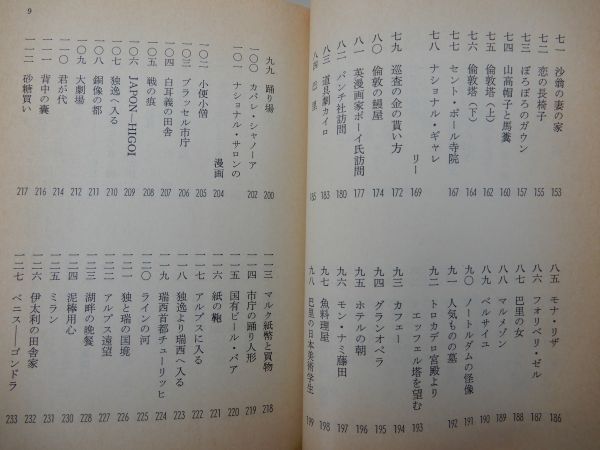 七一 沙翁の妻の家 153
七二 恋の長椅子 155
七三 ぼろぼろのガウン 157
七四 山高帽子と馬糞 160
七五 倫敦塔（上） 162
七六 倫敦塔（下） 164
七七 セント・ポール寺院 167
七八 ナショナル・ギャレリー 169
七九 巡査の金の貰い方 172
八〇 倫敦の鰻屋 174
八一 英漫画家ボーイ氏訪問 177
八二 パンチ社訪問 180
八三 道具気カイロ 183
八四 巴里 185
八五 モナ・リザ 186
八六 フォリベリ・ゼル 187
八七 巴里の女 188
八八 マルメゾン 189
八九 ベルサイユ 190
九〇 ノートルダムの怪像 191
九一 人気ものの墓 192
九二 トロカデロ宮殿より
エッフェル塔を望む 193
九三 カフェー 194
九四 グランオペラ 195
九五 ホテルの朝 196
九六 モン・ナミ藤田 197
九七 魚料理屋 198
九八 巴里の日本美術学生 199
9
九九 踊り場 200
一〇〇 カバレ・シャノーア 202
一〇一 ナショナル・サロンの
漫画 204
一〇二 小便小僧 205
一〇三 ブラッセル市庁 206
一〇四 白耳義の田舎 207
一〇五 戦の痕 208
一〇六 JAPON―HIGOI 209
一〇七 独逸へ入る 210
一〇八 銅像の都 211
一〇九 大劇場 212
一一〇 君が代 214
一一一 背中の嚢 216
一一二 砂糖買い 217
一一三 マルク紙幣と買物 218
一一四 市庁の踊り人形 219
一一五 国有ビール・バア 220
一一六 紙の鞄 221
一一七 アルプスに入る 222
一一八 独逸より瑞西へ入る 223
一一九 瑞西首都チューリッヒ 224
一二〇 ラインの河 225
一二一 独と瑞の国境 226
一二二 アルプス遠望 227
一二三 湖畔の晩餐 228
一二四 泥棒用心 229
一二五 ミラン 230
一二六 伊太利の田舎家 231
一二七 ベニス――ゴンドラ 233